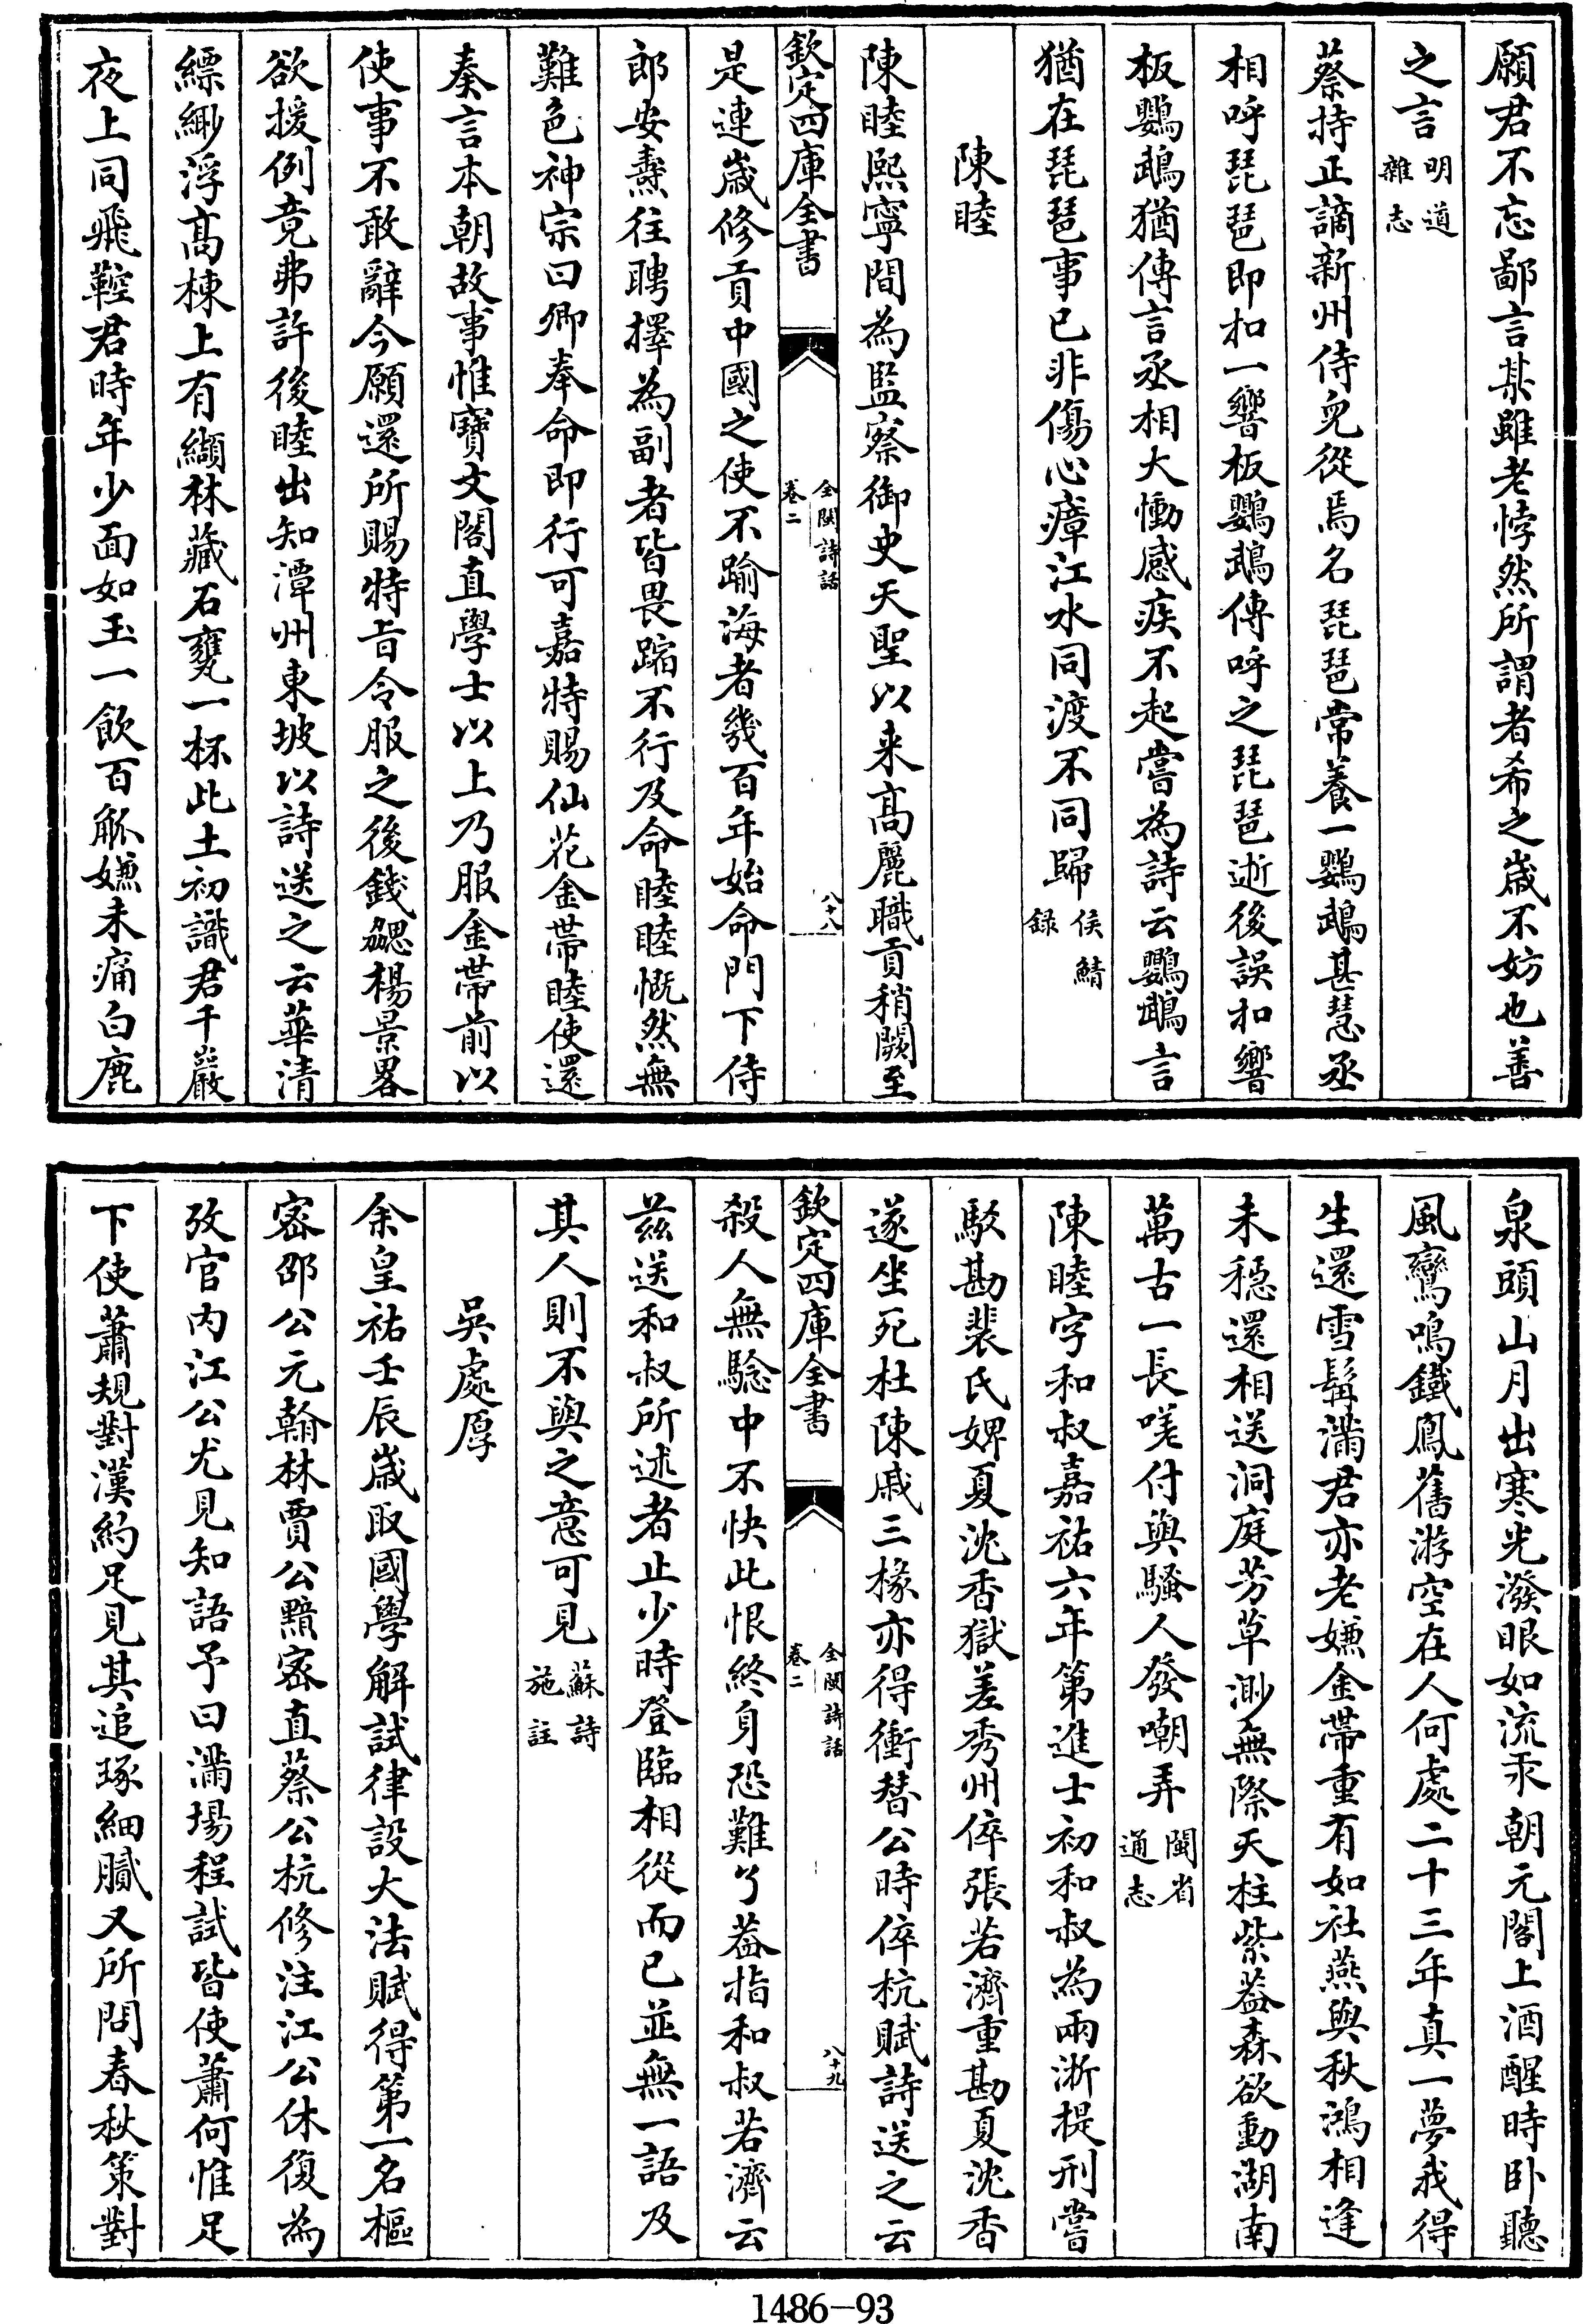 願君不忘鄙言某雖老悖然所謂者希之歲不妨也善
之言明道雜志
蔡持正謫新州侍兒從焉名琵琶常養一鸚鵡甚慧丞
相呼琵琶即扣一響板鸚鵡傳呼之琵琶逝後誤扣響
板鸚鵡猶傳言丞相大慟感疾不起嘗為詩云鸚鵡言
猶在琵琶事已非傷心瘴江水同渡不同歸侯鯖録
陳睦
陳睦熙寧間為監察御史天聖以来髙麗職貢稍闕至
欽定四庫全書
全閩詩話
卷二
八十八
是連歲修貢中國之使不踰海者幾百年始命門下侍
郎安燾往聘擇為副者皆畏蹜不行及命睦睦慨然無
難色神宗曰卿奉命即行可嘉特賜仙花金帶睦使還
奏言本朝故事惟寶文閣直學士以上乃服金帶前以
使事不敢辭今願還所賜特㫖令服之後錢勰楊景畧
欲援例竟弗許後睦出知潭州東坡以詩送之云華清
縹緲浮髙棟上有纈林藏石甕一杯此土初識君千巖
夜上同飛鞚君時年少面如玉一飲百觚嫌未痛白鹿
泉頭山月出寒光潑眼如流汞朝元閣上酒醒時卧聽
風鸞鳴鐵鳳舊游空在人何處二十三年真一夢我得
生還雪髯滿君亦老嫌金帶重有如社燕與秋鴻相逢
未穏還相送洞庭芳草渺無際天柱紫葢森欲動湖南
萬古一長嗟付與騷人發嘲弄閩省通志
陳睦字和叔嘉祐六年第進士初和叔為兩浙提刑嘗
駁勘裴氏婢夏沈香獄差秀州倅張若濟重勘夏沈香
遂坐死杜陳戚三掾亦得衝替公時倅杭賦詩送之云
欽定四庫全書
全閩詩話
卷二
八十九
殺人無驗中不快此恨終身恐難了葢指和叔若濟云
兹送和叔所述者止少時登臨相從而已並無一語及
其人則不與之意可見蘇詩施註
吳處厚
余皇祐壬辰歲取國學解試律設大法賦得第一名樞
宻邵公元翰林賈公黯宻直蔡公杭修注江公休復為
攷官内江公尤見知語予曰滿塲程試皆使蕭何惟足
下使蕭規對漢約足見其追琢細膩又所問春秋策對
1486-93